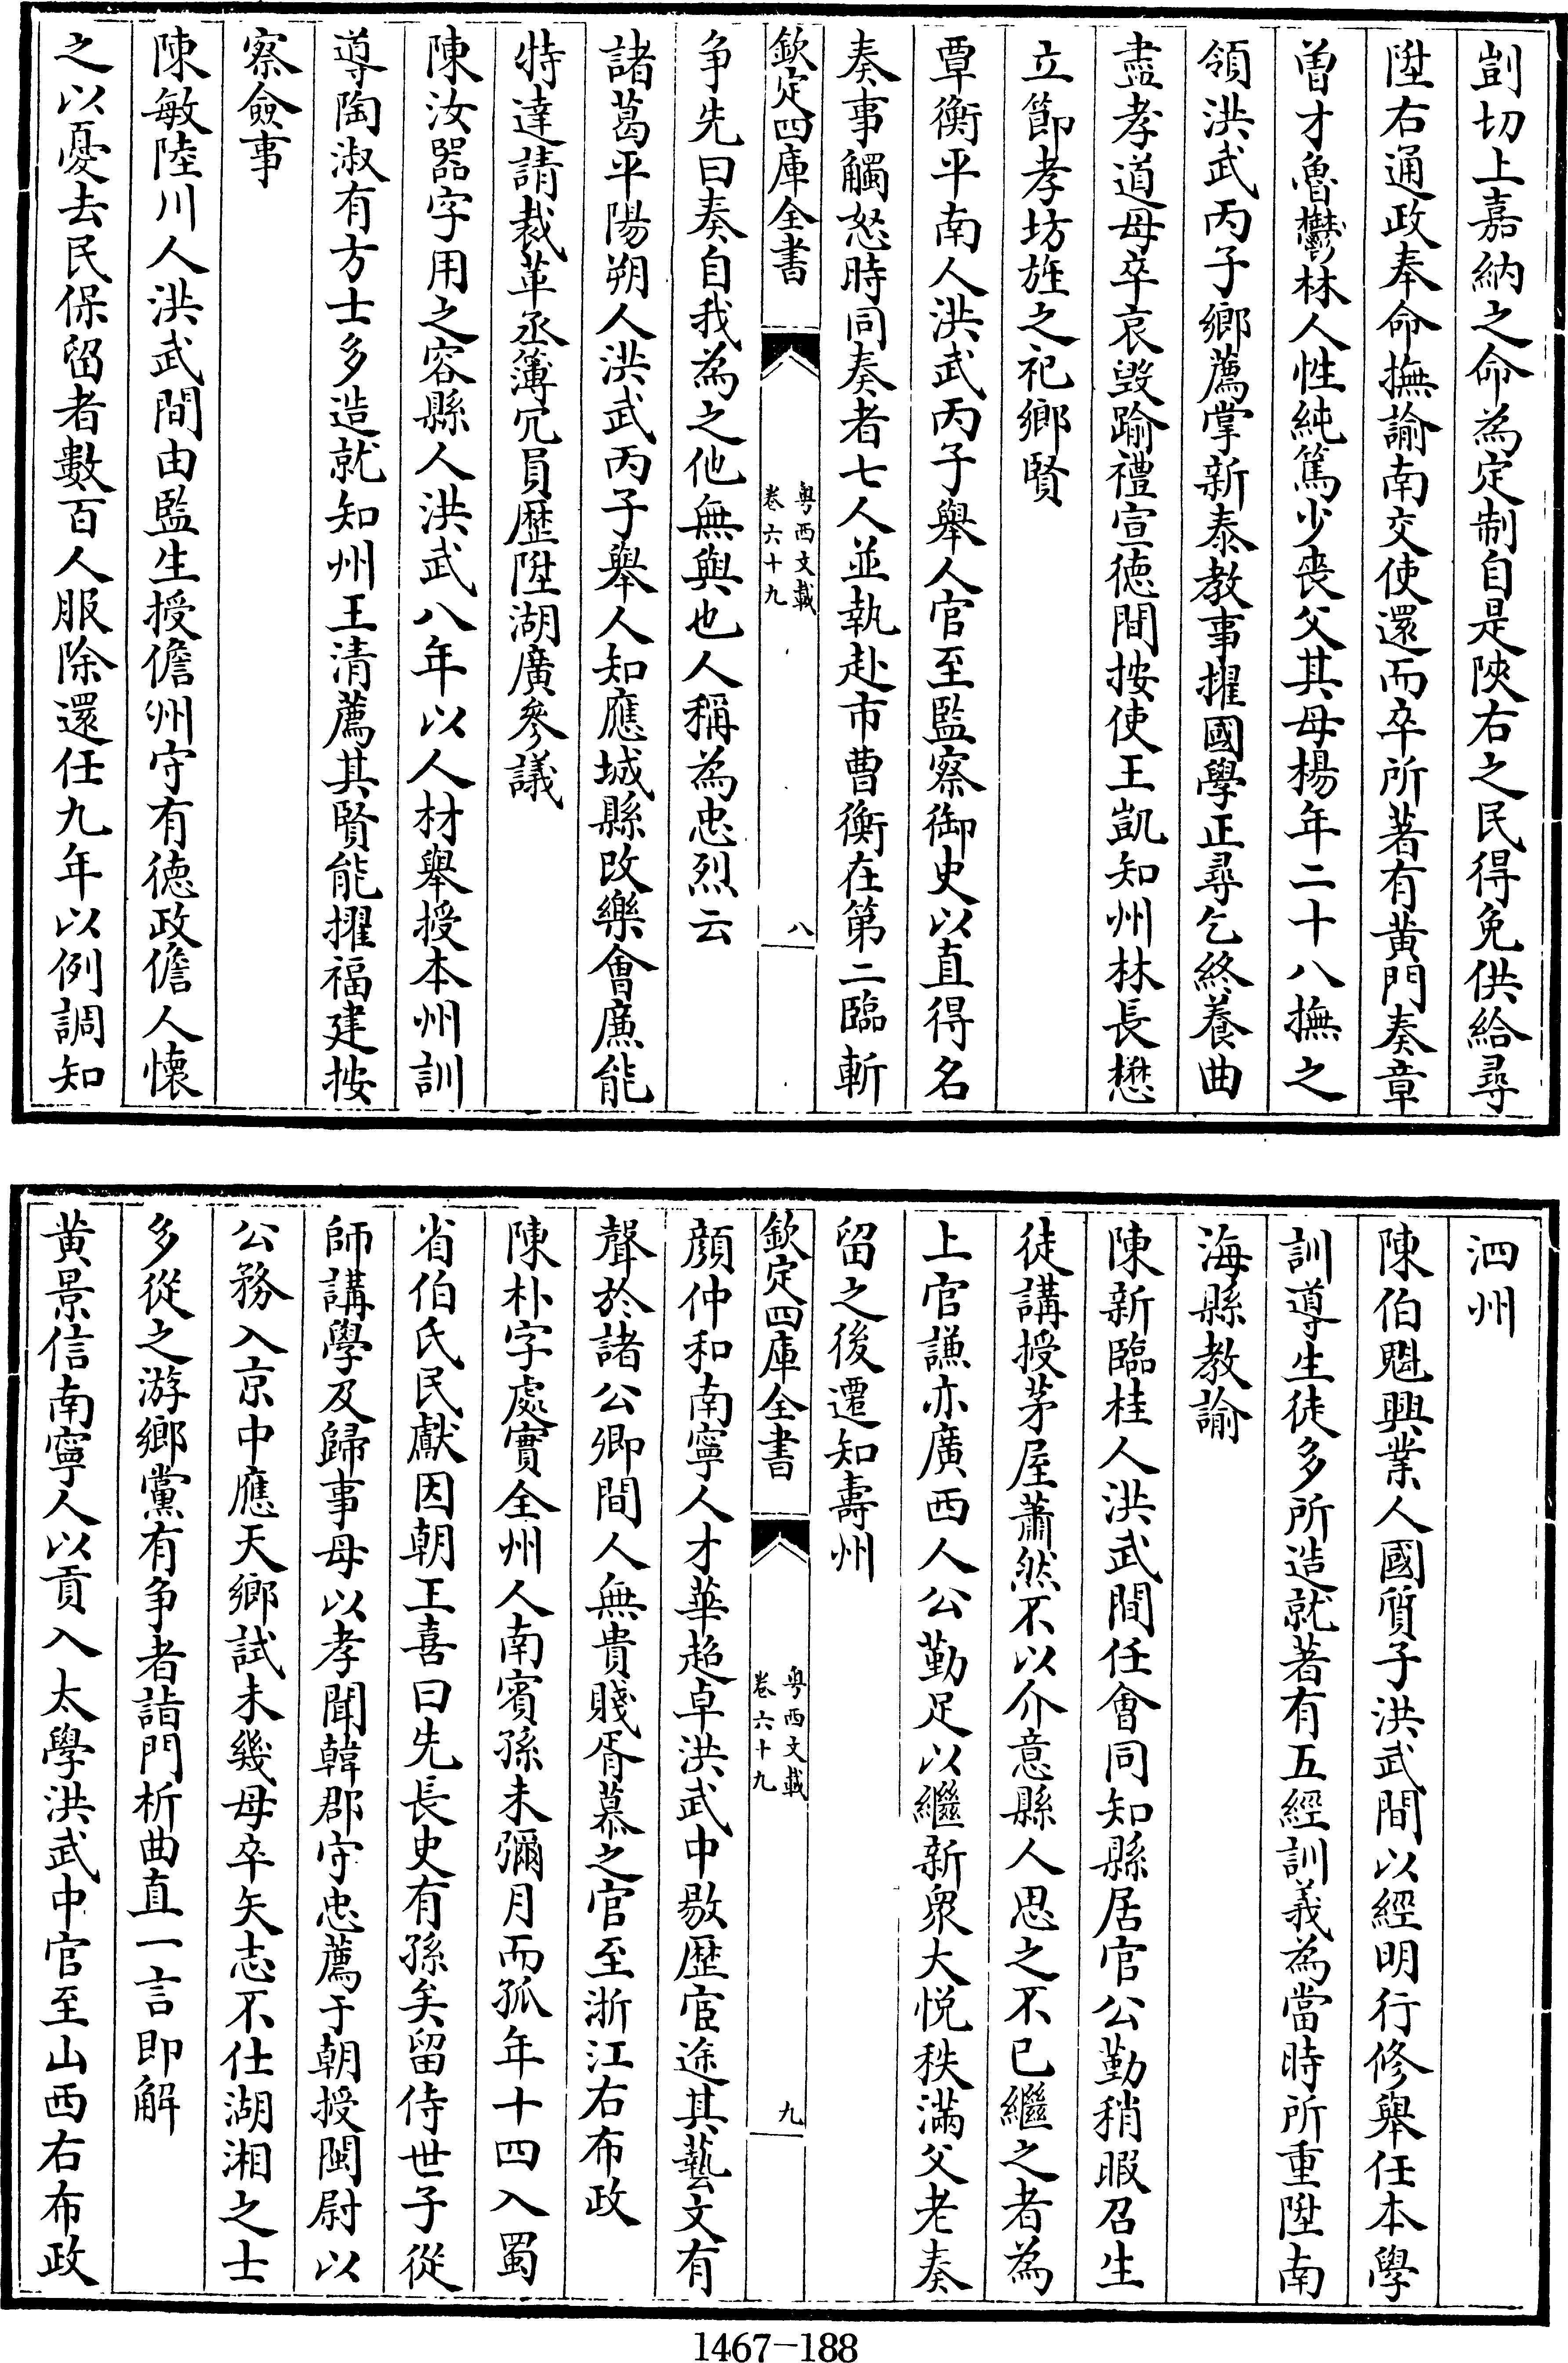 剴切上嘉納之命為定制自是陜右之民得免供給尋
陞右通政奉命撫諭南交使還而卒所著有黄門奏章
曾才魯鬱林人性純篤少喪父其母楊年二十八撫之
領洪武丙子鄉薦掌新泰教事擢國學正尋乞終養曲
盡孝道母卒哀毀踰禮宣徳間按使王凱知州林長懋
立節孝坊旌之祀鄉賢
覃衡平南人洪武丙子舉人官至監察御史以直得名
奏事觸怒時同奏者七人並執赴市曹衡在第二臨斬
欽定四庫全書
粤西文載
卷六十九
八
争先曰奏自我為之他無與也人稱為忠烈云
諸葛平陽朔人洪武丙子舉人知應城縣改樂會廉能
特達請裁革丞簿冗員歴陞湖廣參議
陳汝器字用之容縣人洪武八年以人材舉授本州訓
導陶淑有方士多造就知州王清薦其賢能擢福建按
察僉事
陳敏陸川人洪武間由監生授儋州守有徳政儋人懐
之以憂去民保留者數百人服除還任九年以例調知
泗州
陳伯魁興業人國質子洪武間以經明行修舉任本學
訓導生徒多所造就著有五經訓義為當時所重陞南
海縣教諭
陳新臨桂人洪武間任會同知縣居官公勤稍暇召生
徒講授茅屋蕭然不以介意縣人思之不已繼之者為
上官謙亦廣西人公勤足以繼新衆大悦秩滿父老奏
留之後遷知壽州
欽定四庫全書
粤西文載
卷六十九
九
顔仲和南寧人才華超卓洪武中敭歴宦途其藝文有
聲於諸公卿間人無貴賤胥慕之官至浙江右布政
陳朴字處實全州人南賓孫未彌月而孤年十四入蜀
省伯氏民獻因朝王喜曰先長史有孫矣留侍世子從
師講學及歸事母以孝聞韓郡守忠薦于朝授閩尉以
公務入京中應天鄉試未幾母卒矢志不仕湖湘之士
多從之游鄉黨有争者詣門析曲直一言即解
黄景信南寧人以貢入太學洪武中官至山西右布政
1467-188